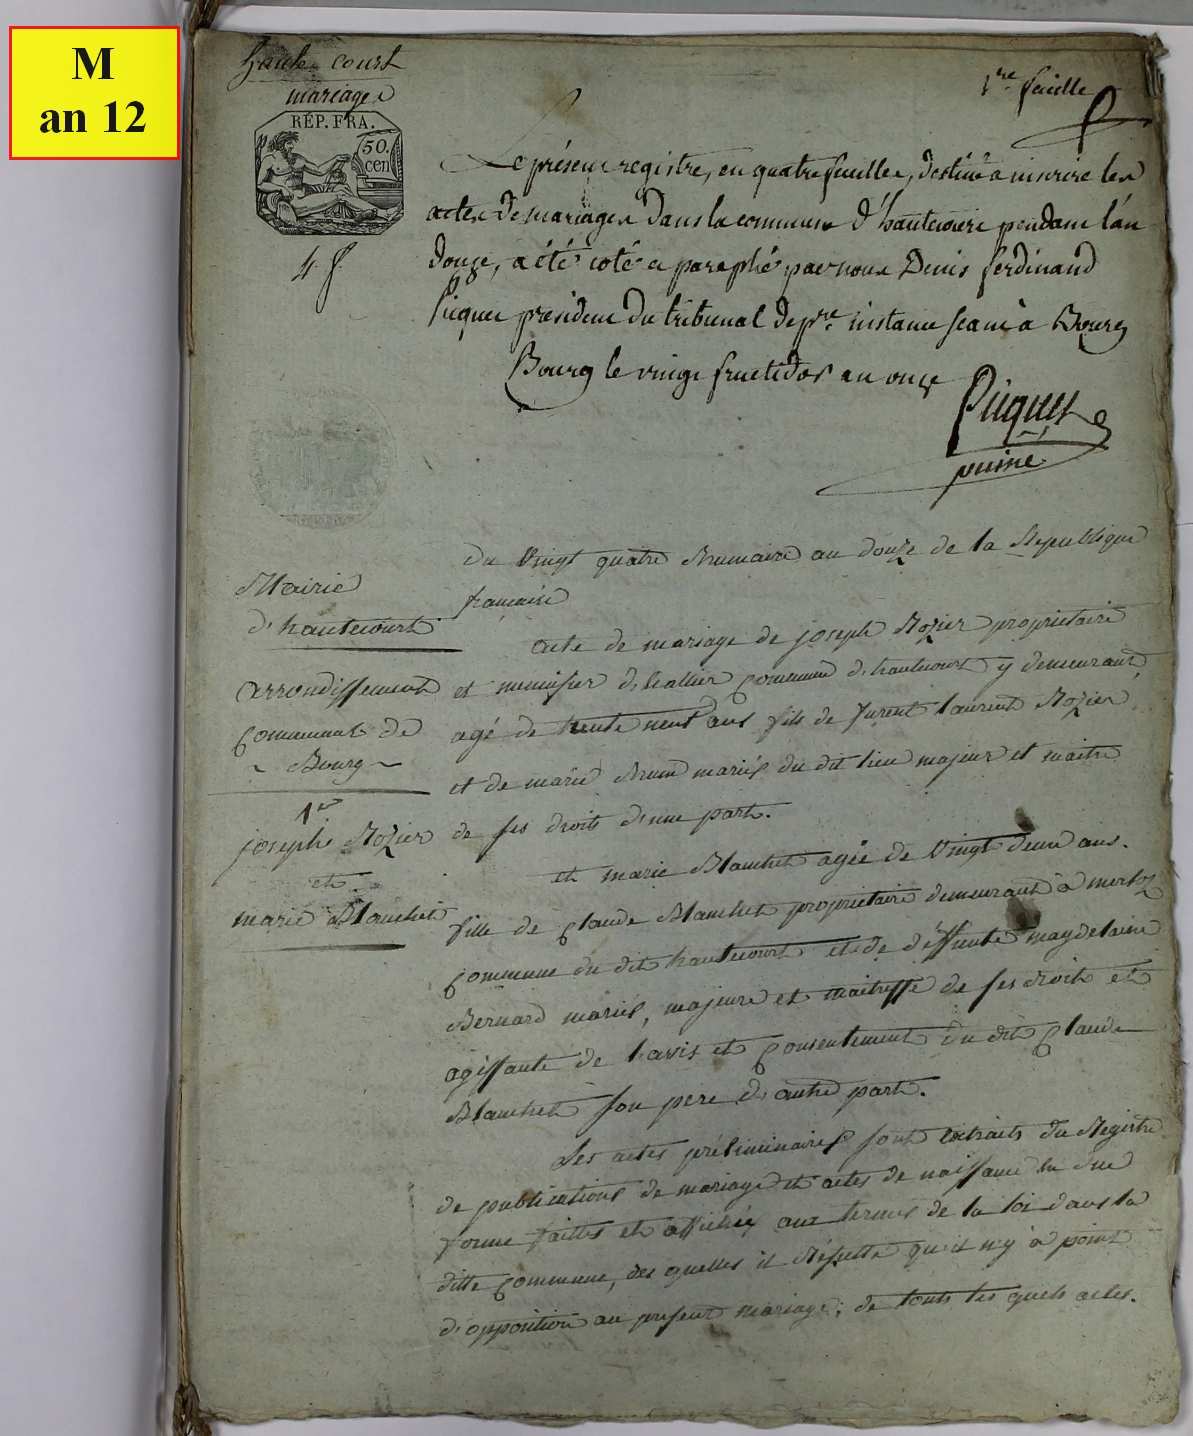 M
an 12
haute court
mariages
RÉP. FRA.
50.
cen
4 f.
1re feuille
Le présent registre, en quatre feuilles, destiné a inscrire les
actes de mariages dans la commune d'hautecourt pendant l'an
douze, a été coté et paraphé par nous Denis ferdinand
Piquet président du tribunal de pre. instance séant à Bourg
Bourg le vingt fructidor an onze
Piquet
puiné
Mairie
d'hautecourt
arrondissement
Communal de
~ Bourg ~
1er
joseph Rozier
et
marie Blanchet
du Vingt quatre Brumaire an douze de la Republique
francaise
acte de mariage de joseph Rozier proprietaire
et menuisier d'hallier Commune d'hautecourt y demeurant,
agé de trente neuf ans fils de Laurent Rozier
et de marie Brun mariés du dit lieu majeur et maitre
de ses droits d'une part.
et marie Blanchet agée de Vingt deux ans.
fille de Claude Blanchet proprietaire demeurant à merloz
Commune du dit hautecourt et de déffunte magdelaine
Bernard mariés, majeure et maitresse de ses droits et
agissante de l'avis et Consentement du dit Claude
Blanchet son pere d'autre part.
Les actes préliminaires sont extraits du Registre
de publications de mariage et actes de naissance en due
forme faittes et affichés aux termes de la loi dans la
ditte Commune, des quelles il Résulte qu'il n'y à point
d'opposition au present mariage; de touts les quels actes.